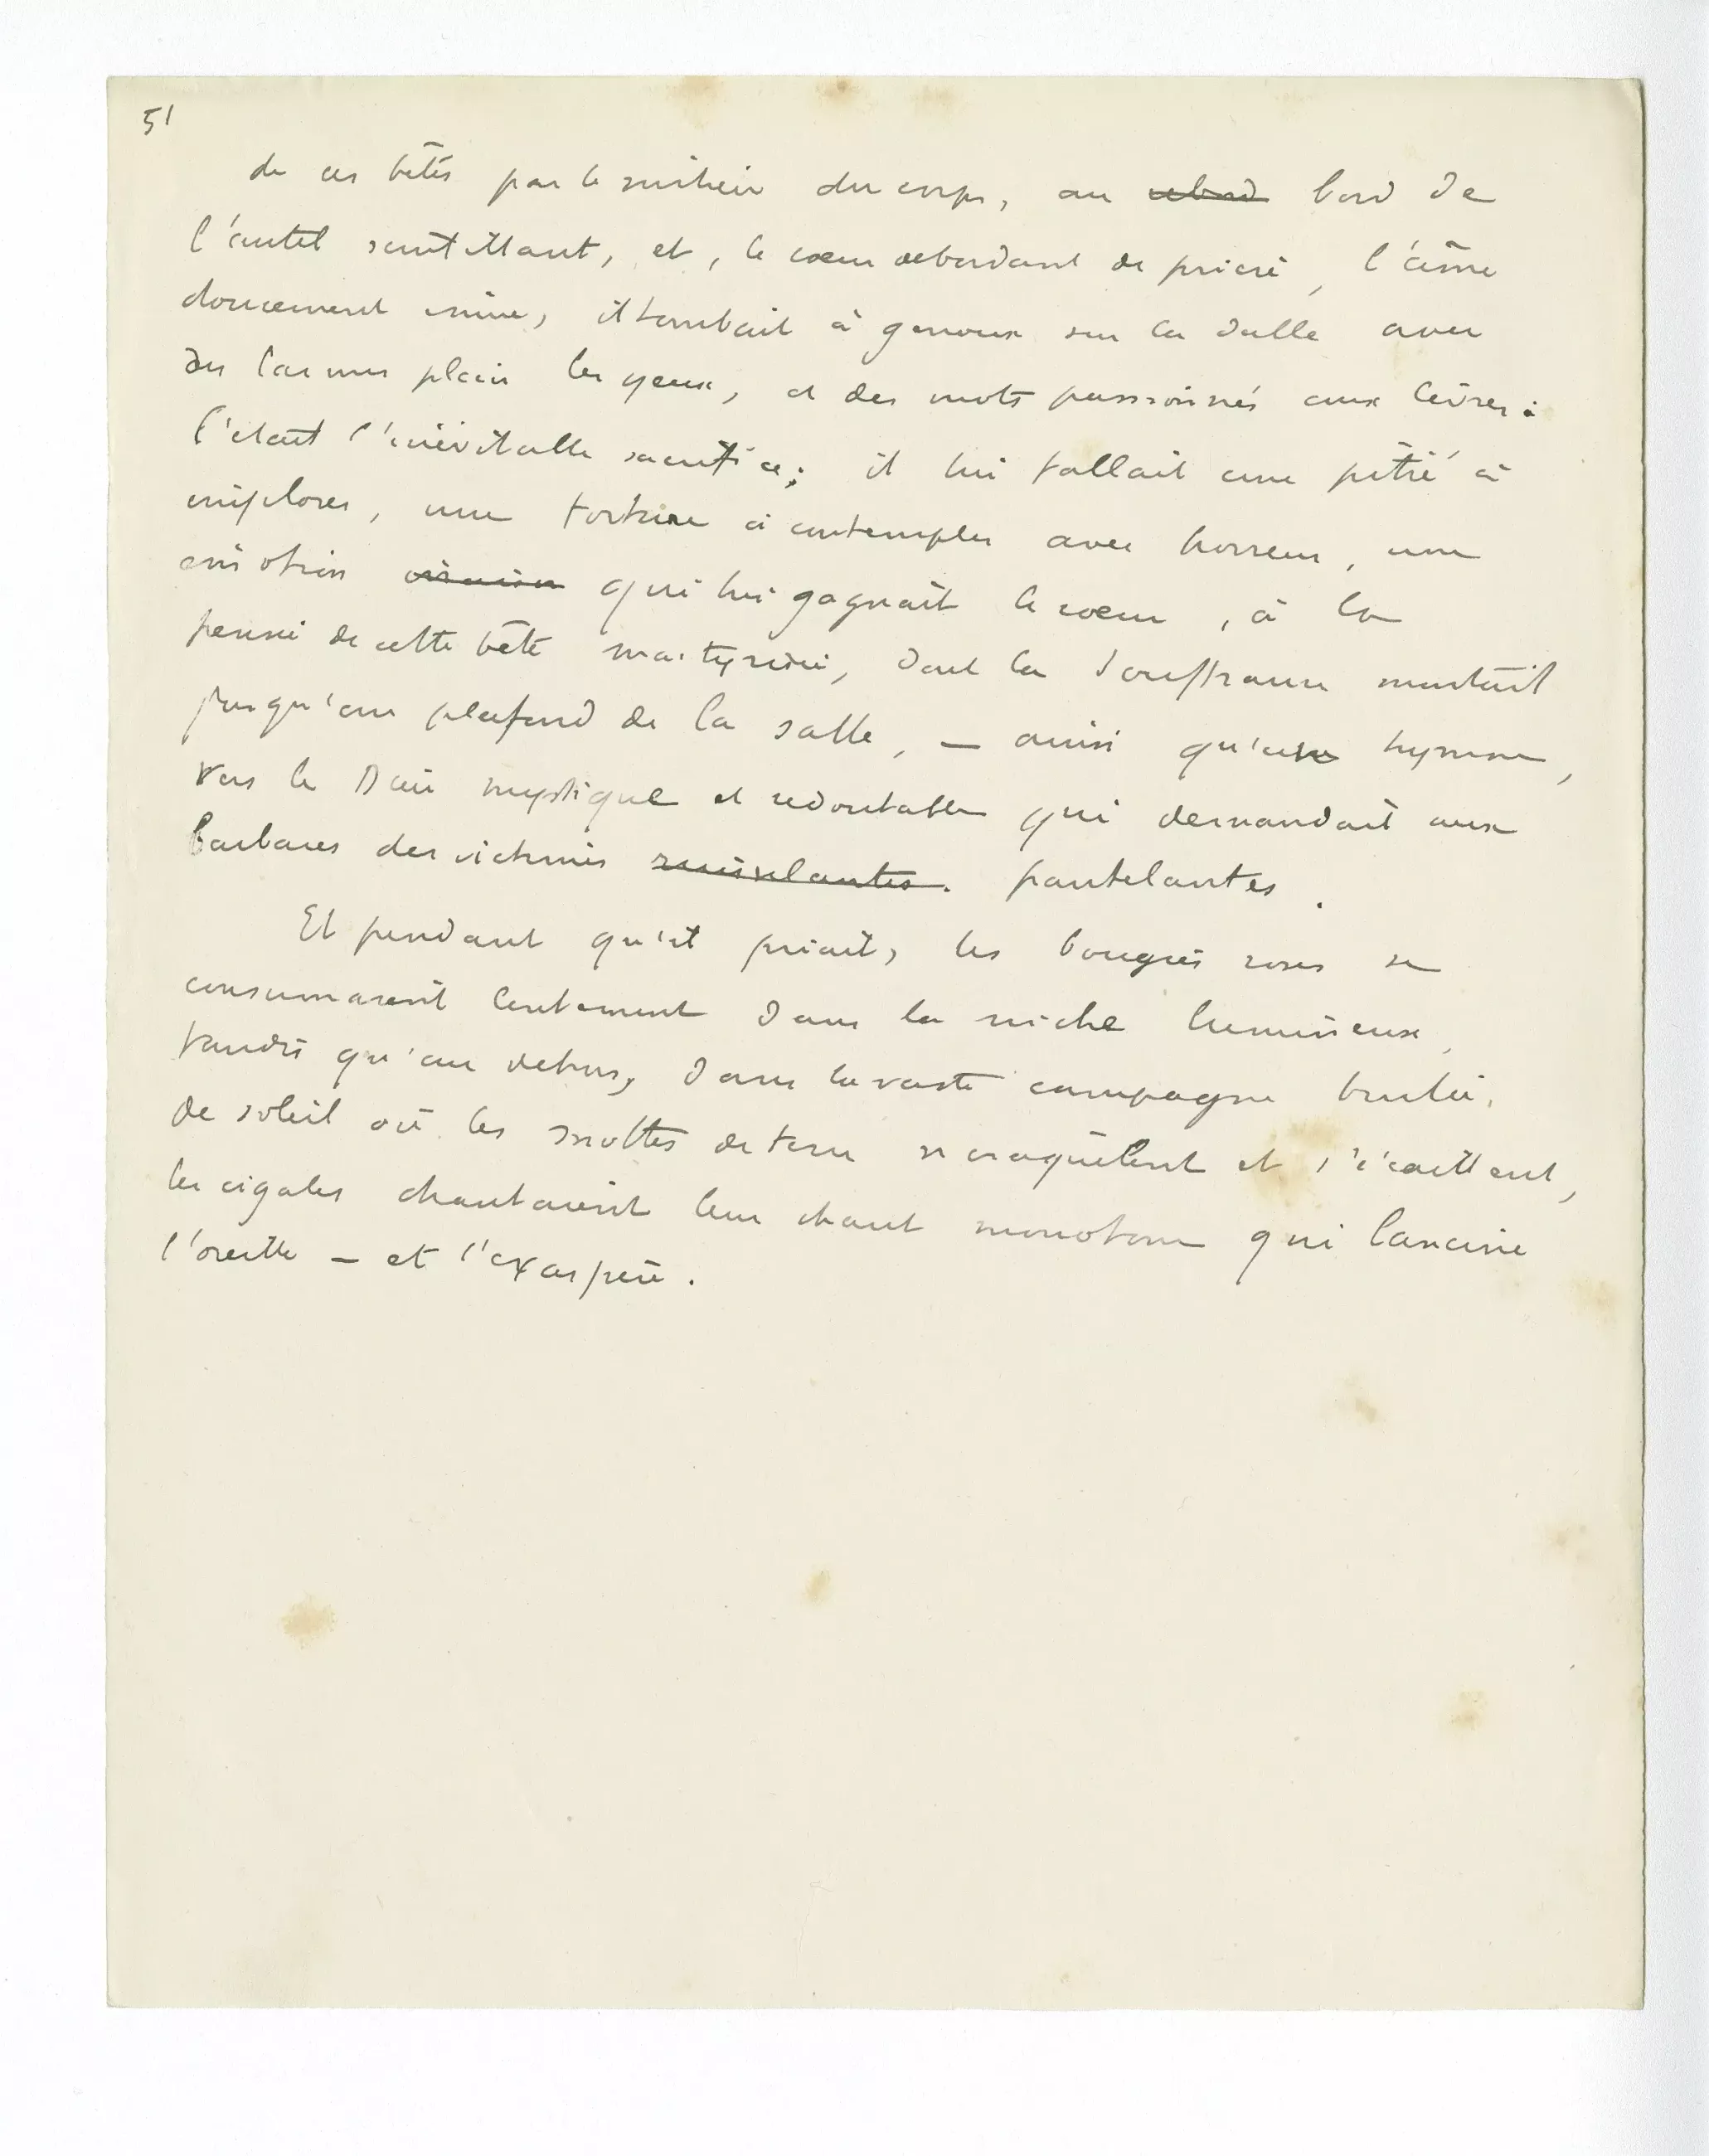 51
de ces bêtes par le milieu du corps, au rebord bord de
l'autel scintillant, et, le cœur débordant de prière, l'âme
doucement émue, il tombait à genoux sur la dalle avec
des larmes plein les yeux, et des mots passionnés aux lèvres :
C'etait l'inévitable sacrifice ; il lui fallait une pitié à
implorer, une torture à contempler avec horreur, une
émotion qui lui gagnait le cœur, à la
pensée de cette bête martyrisée, dont la souffrance montait
jusqu'au plafond de la salle, — ainsi qu'un hymne,
vers le Dieu mystique et redoutable qui demandait aux
barbares des victimes pantelantes.
Et pendant qu'il priait, les bougies roses se
consumaient lentement dans la niche lumineuse,
tandis qu'au dehors, dans la vaste campagne brulée,
de soleil où les mottes de terre se craquèlent et s'écaillent,
les cigales chantaient leur chant monotone qui lancine
l'oreille — et l'exaspère.